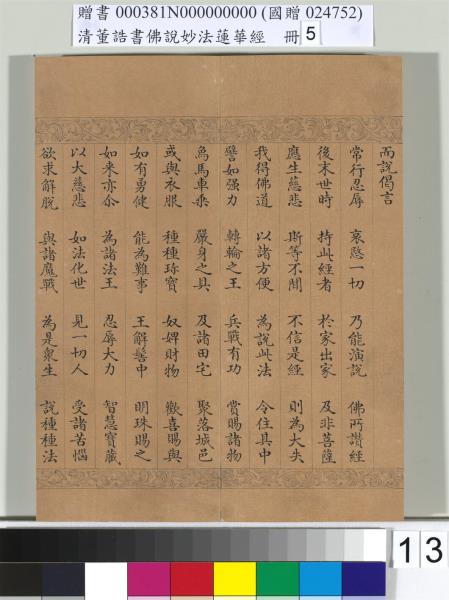 贈書 000381N000000000 (國贈 024752)
清董誥書佛說妙法蓮華經 冊 5
而說偈言
常行忍辱 哀愍一切 乃能演說 佛所讚經
後末世時 持此經者 於家出家 及非菩薩
應生慈悲 斯等不聞 不信是經 則為大失
我得佛道 以諸方便 為說此法 令住其中
譬如强力 轉輪之王 兵戰有功 賞賜諸物
象馬車乘 嚴身之具 及諸田宅 聚落城邑
或與衣服 種種珍寶 奴婢財物 歡喜賜與
如有勇健 能為難事 王解髻中 明珠賜之
如來亦尒 為諸法王 忍辱大力 智慧寶藏
以大慈悲 如法化世 見一切人 受諸苦惱
欲求解脫 與諸魔戰 為是衆生 說種種法
13